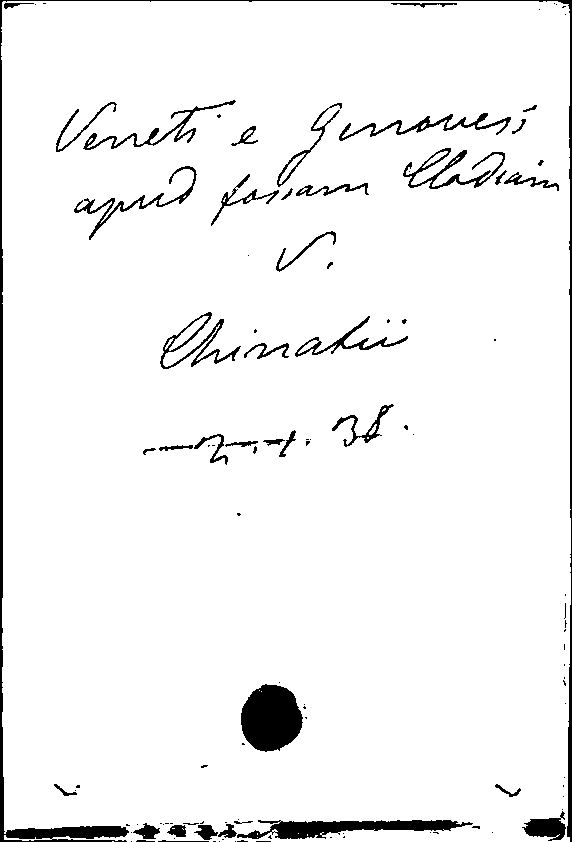 Veneti e Genovesi
apud fossam Clodiam
V.
Chinatii
38.